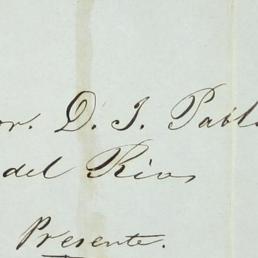 or. D. J. Pabl
del Rio,
Presente.